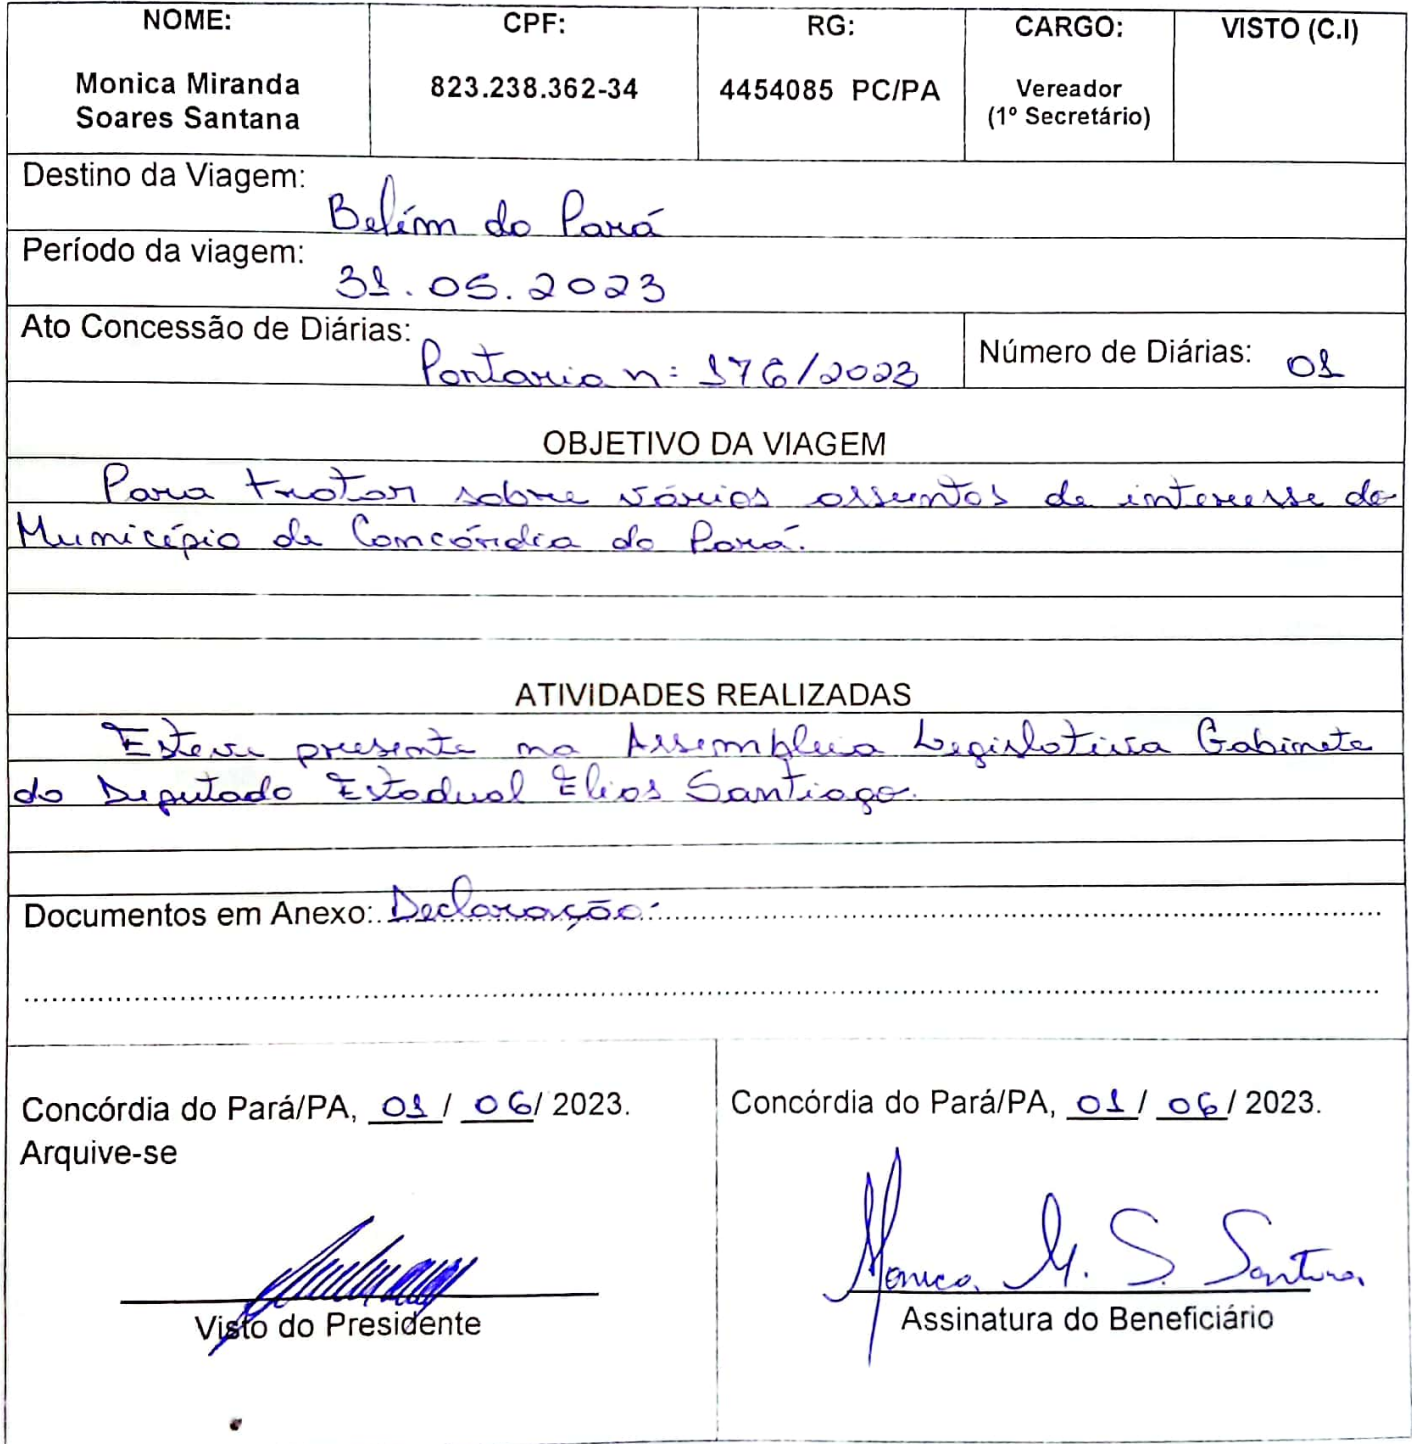 NOME: CPF: RG: CARGO: VISTO (C.I)
Monica Miranda 823.238.362-34 4454085 PC/PA Vereador
Soares Santana (1º Secretário)
Destino da Viagem:
Belém do Pará
Período da viagem:
31.05.2023
Ato Concessão de Diárias: Portaria n: 176/2023 Número de Diárias: 01
OBJETIVO DA VIAGEM
Para tratar sobre vários assuntos de interesse do
Município de Concórdia do Pará.
ATIVIDADES REALIZADAS
Esteve presente na Assembleia Legislativa Gabinete
do Deputado Estadual Elias Santiago.
Documentos em Anexo: Declaração.
Concórdia do Pará/PA, 01/06/2023. Concórdia do Pará/PA, 01/06/2023.
Arquive-se
Monica M. S. Santana
Visto do Presidente Assinatura do Beneficiário